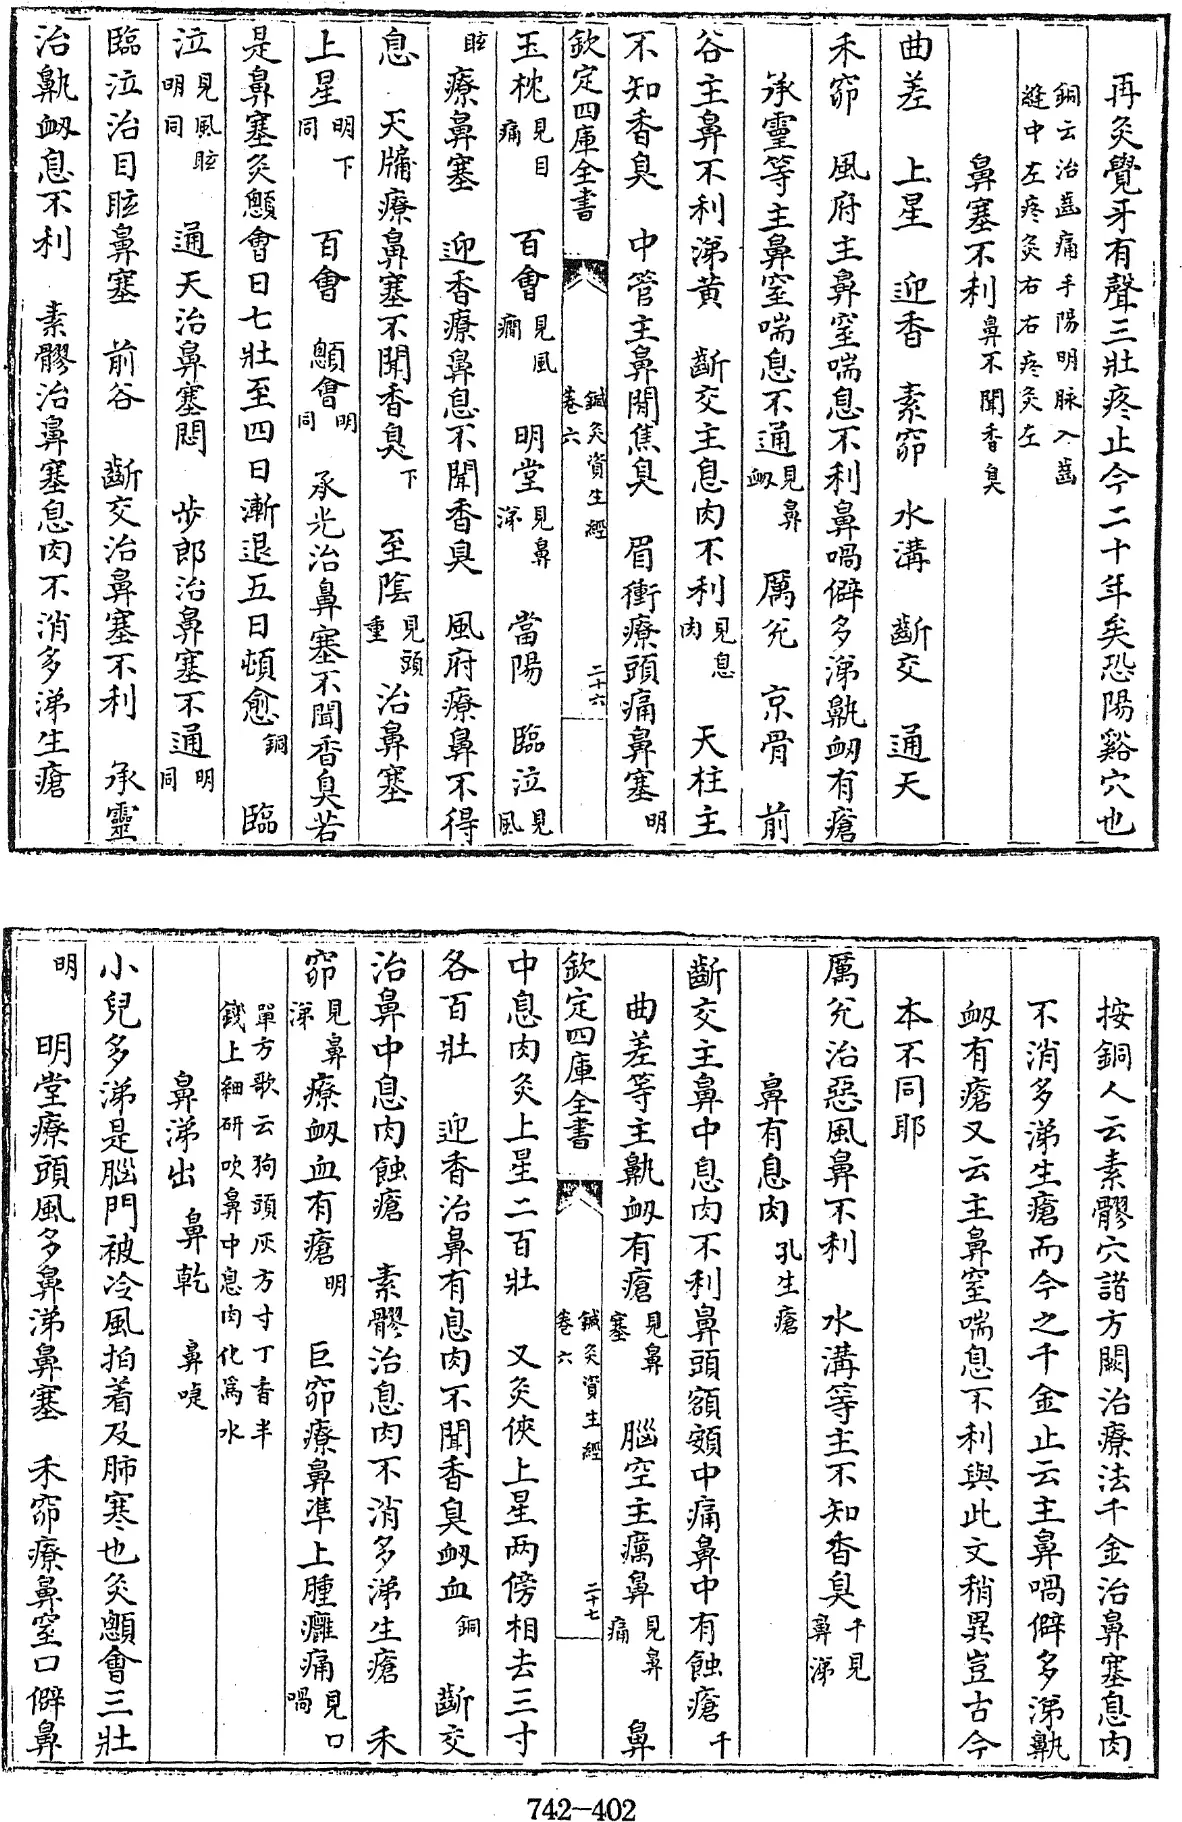 再灸覺牙有聲三壯疼止今二十年矣恐陽谿穴也
銅云治齒痛手陽明脉入齒
縫中左疼灸右右疼灸左
鼻塞不利鼻不聞香臭
曲差　上星　迎香　素窌　水溝　齗交　通天
禾窌　風府主鼻窒喘息不利鼻喎僻多涕鼽衂有瘡
承靈等主鼻窒喘息不通見鼻衂　厲兊　京骨　前
谷主鼻不利涕黄　齗交主息肉不利見息肉　天柱主
不知香臭　中管主鼻閒焦臭　眉衝療頭痛鼻塞明
欽定四庫全書　鍼灸資生經　卷六　二十六
玉枕見目痛　百會見風癇　明堂見鼻涕　當陽　臨泣見風
眩　療鼻塞　迎香療鼻息不聞香臭　風府療鼻不得
息　天牖療鼻塞不聞香臭下　至陰見頭重　治鼻塞
上星明下同　百會　顖會明同　承光治鼻塞不聞香臭若
是鼻塞灸顖會日七壯至四日漸退五日頓愈銅　臨
泣見風眩明同　通天治鼻塞悶　步郎治鼻塞不通明同
臨泣治目眩鼻塞　前谷　齗交治鼻塞不利　承靈
治鼽衂息不利　素髎治鼻塞息肉不消多涕生瘡
按銅人云素髎穴諸方闕治療法千金治鼻塞息肉
不消多涕生瘡而今之千金止云主鼻喎僻多涕鼽
衂有瘡又云主鼻窒喘息不利與此文稍異豈古今
本不同耶
厲兊治惡風鼻不利　水溝等主不知香臭千見鼻涕
鼻有息肉孔生瘡
齗交主鼻中息肉不利鼻頭額頞中痛鼻中有蝕瘡千
曲差等主鼽衂有瘡見鼻塞　腦空主癘鼻見鼻痛　鼻
欽定四庫全書　鍼灸資生經　卷六　二十七
中息肉灸上星二百壯　又灸俠上星两傍相去三寸
各百壯　迎香治鼻有息肉不聞香臭衂血銅　齗交
治鼻中息肉蝕瘡　素髎治息肉不消多涕生瘡　禾
窌見鼻涕療衂血有瘡明　巨窌療鼻準上腫癰痛見口喎
單方歌云狗頭灰方寸丁香半
錢上細研吹鼻中息肉化爲水
鼻涕出　鼻乾　鼻㖞
小兒多涕是腦門被冷風拍着及肺寒也灸顖會三壯
明　明堂療頭風多鼻涕鼻塞　禾窌療鼻窒口僻鼻
742-402